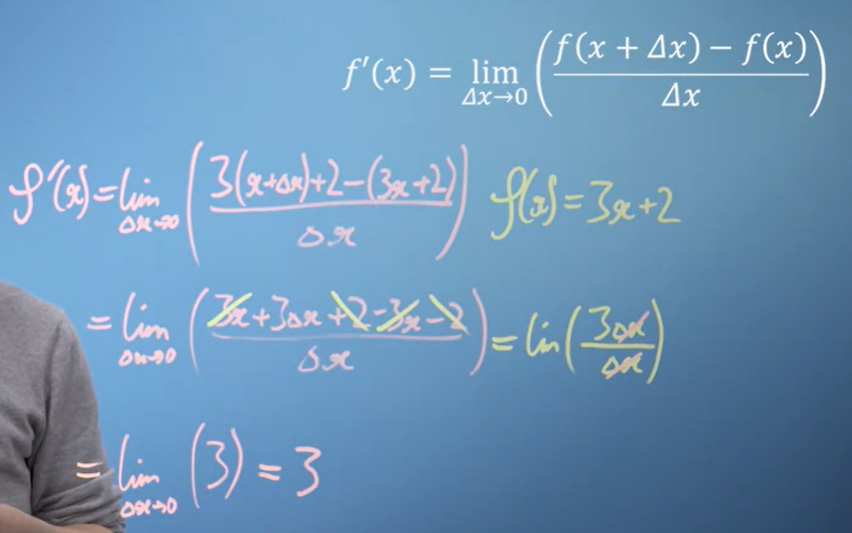 f′(x) = lim Δx→0 ((f(x + Δx) − f(x))/Δx)
f′(x) = lim Δx→0 ((3(x+Δx)+2−(3x+2))/Δx) f(x) = 3x+2
= lim Δx→0 ((3x+3Δx+2−3x−2)/Δx) = lin(3Δx/Δx)
= lim Δx→0 (3) = 3